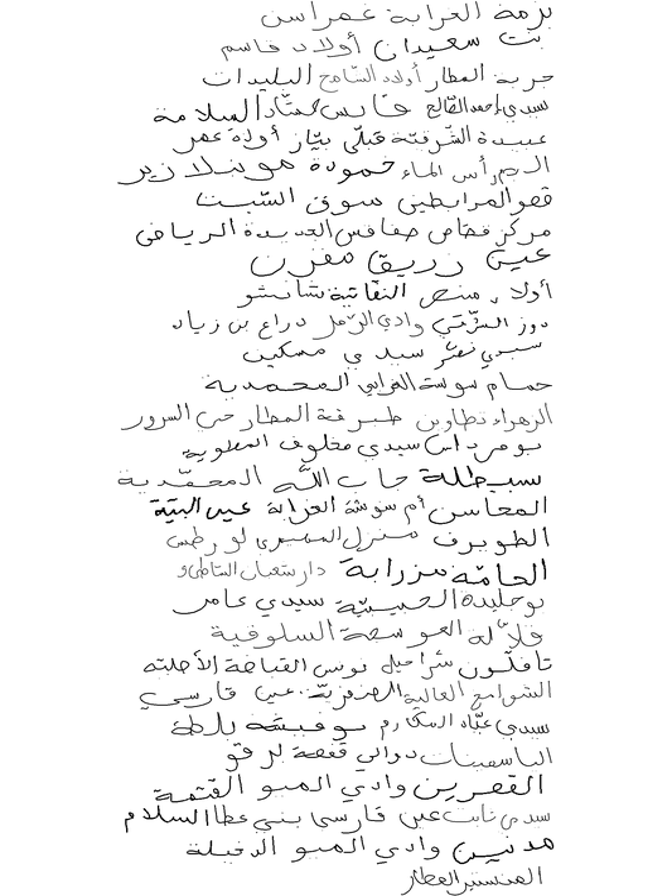 بزمة الغرابة غمراسن
بنت سعيدان أولاد قاسم
جربة المطار أولاد الشامخ البليدات
سيدي أحمد الصالح قابس حشاد السلامة
عبيدة الشرقية قبلي بياز أولاد عمر
الرجم رأس الماء حمودة موبلا زير
قصر المرابطين سوق السبت
مركز قصاص صفاقس الجديدة الرياض
عين زريق مقرن
أولاد منصر النفاتية شانشو
دوز الشرقي وادي الرمل دراع بن زياد
سيدي نصر سيدي مسكين
حمام سوسة الغرابي المحمدية
الزهراء تطاوين طبرقة المطار حي السرور
بومرداس سيدي مخلوف المطوية
سبيطلة جاب الله المحمدية
المحاسن أم سوشة الغرابة عين البية
الطويرف منزل المهيري لورطس
الحامة مزرابة دار شعبان الشاطئ
بوجليدة الحبيبية سيدي عامر
قلالة العوسجة السلوقية
تافلون شراحيل تونس القباضة الأصلية
الشوامخ العالية عين قارسي
سيدي عباد المكارم بوفيشة بلطة
الياسمينات دوالي قفصة لرقو
القصرين وادي الميو القتمة
سيدي ثابت عين قارسي بني عطا السلام
مدنين وادي الميو الدخيلة
المنستير المطار